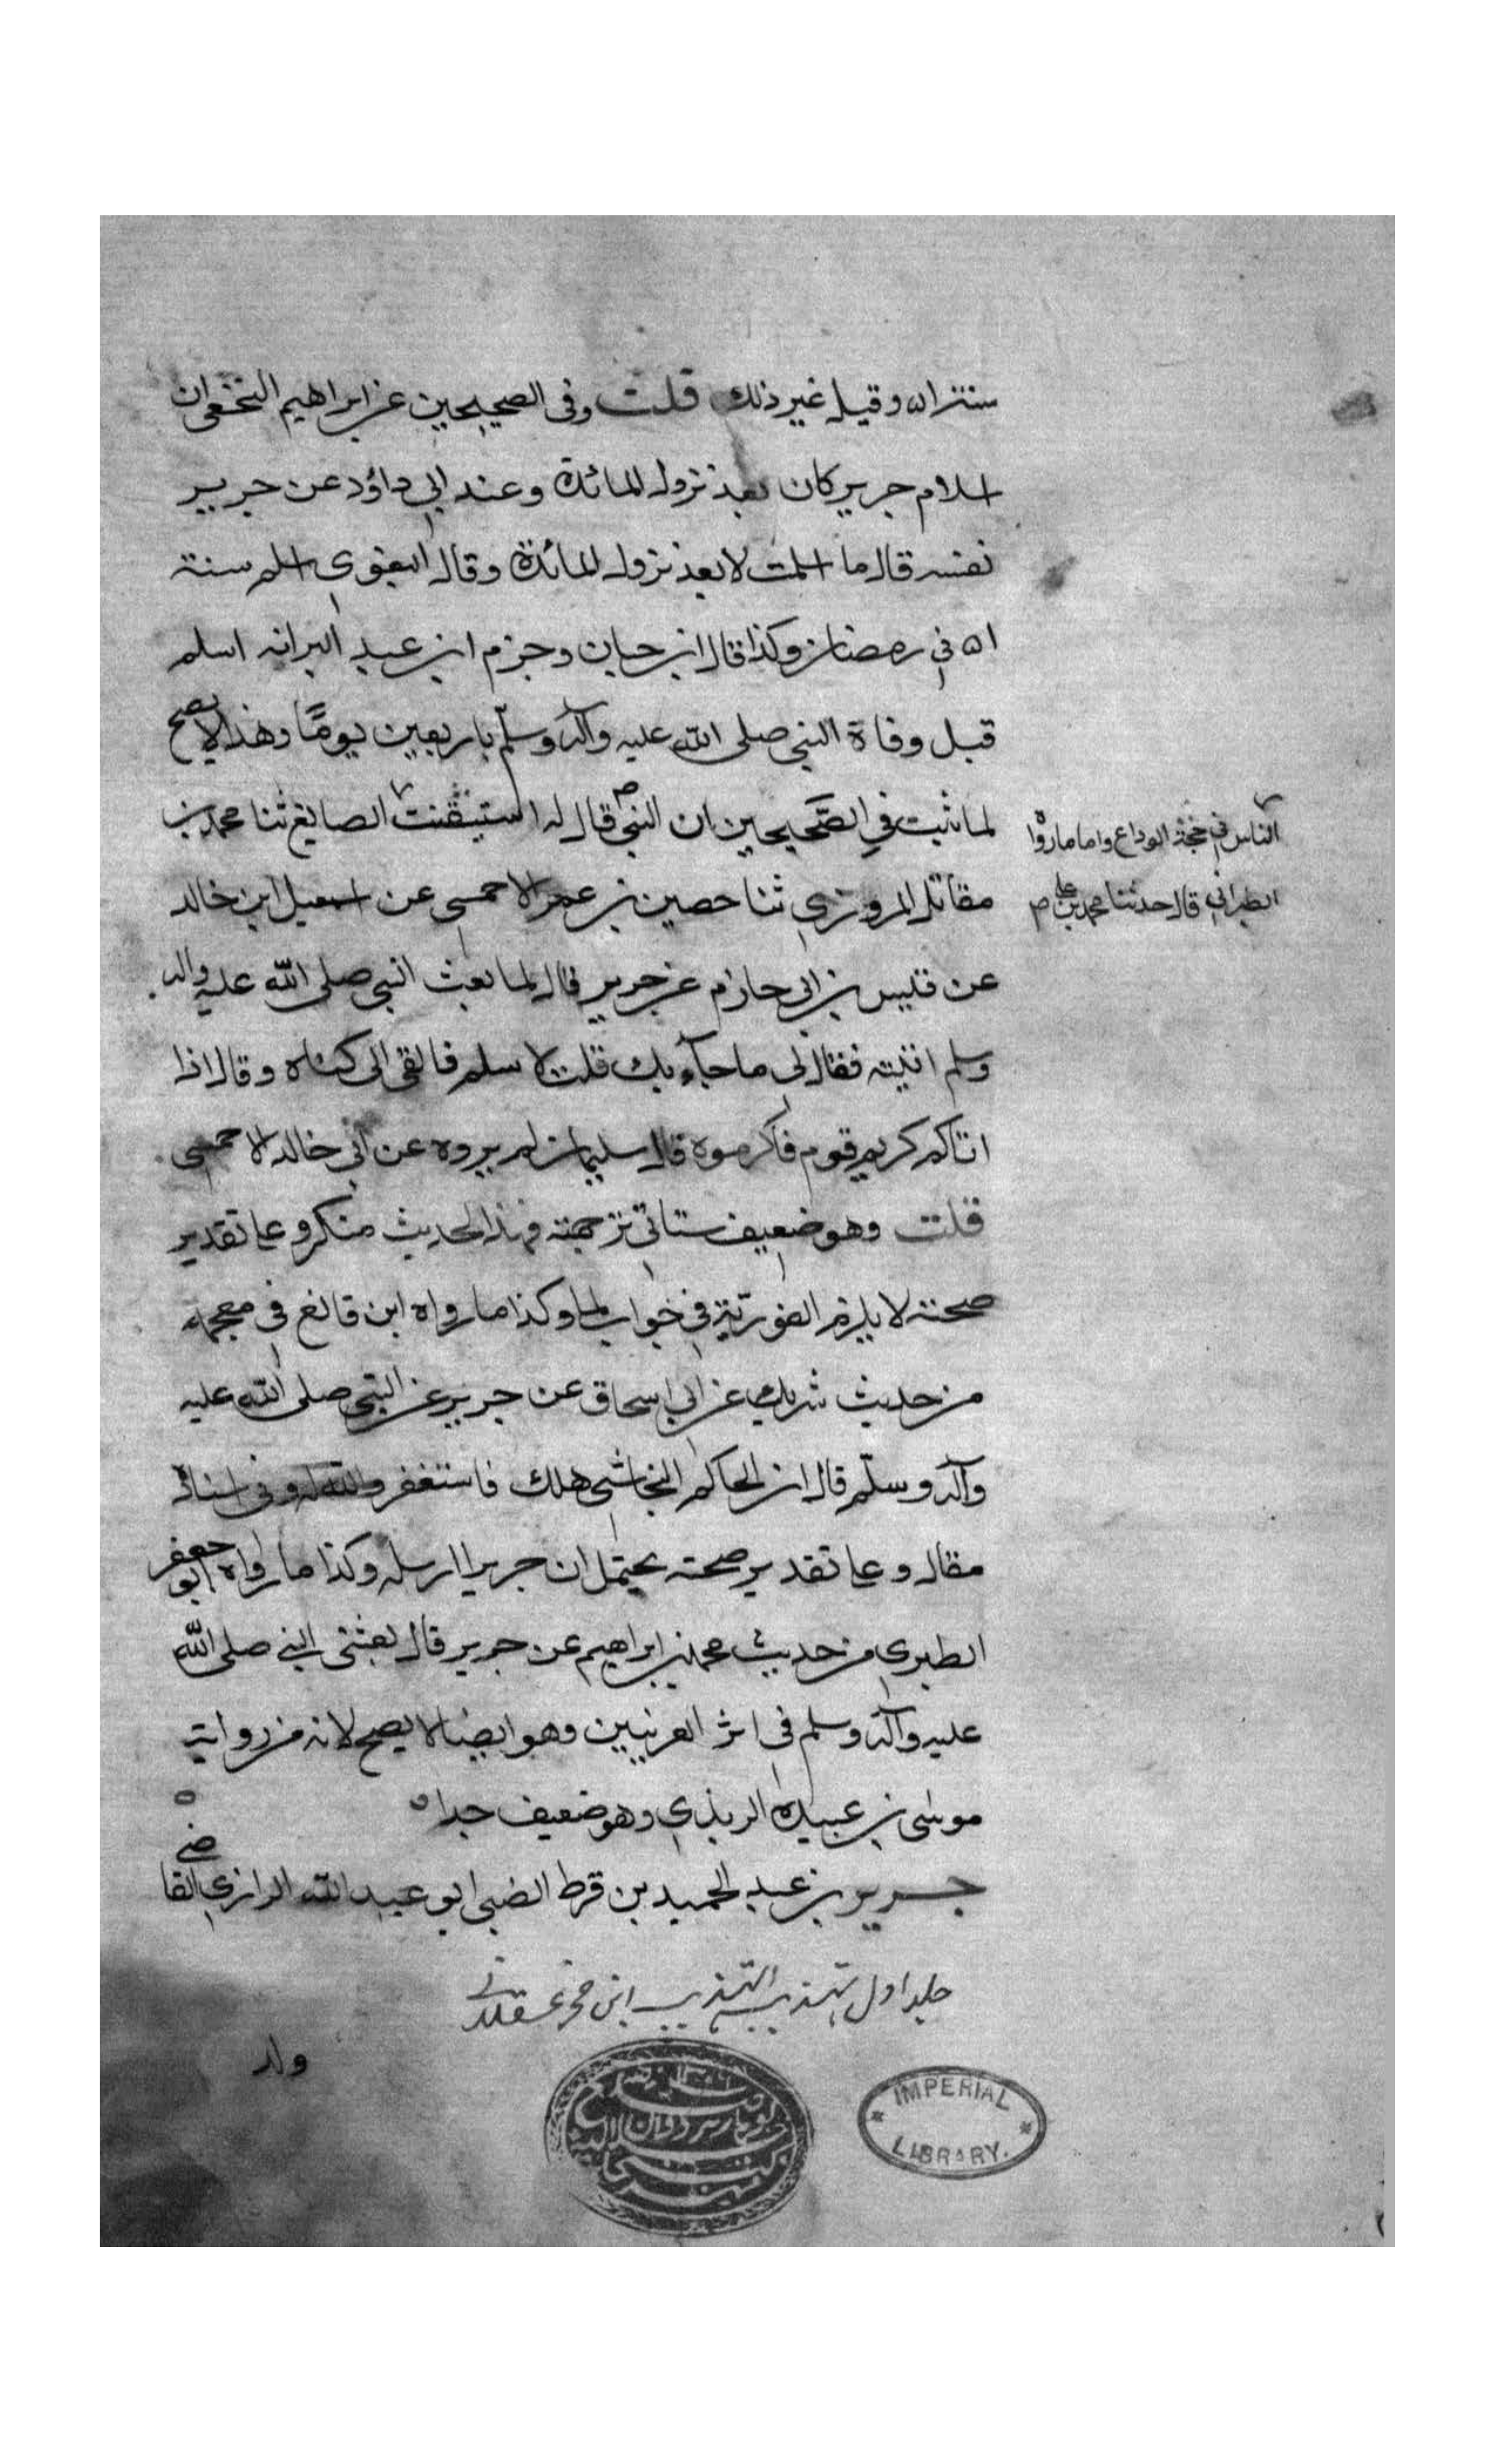 سنة ۵۱ وقيل غير ذلك قلت وفى الصحيحين عن ابراهيم النخعى ان
اسلام جرير كان بعد نزول المائدة وعند ابي داؤد عن جرير
نفسه قال ما اسلمت الا بعد نزول المائدة وقال البغوي اسلم سنة
۱۵ في رمضان وكذا قال ابن حبان وجزم ابن عبد البر انه اسلم
قبل وفاة النبي صلى الله عليه وآله وسلم باربعين يومًا وهذا لا يصح
لما ثبت في الصّحيحين ان النبي ص قال له استنصت الصايغ ثنا محمد بن
الناس في حجة الوداع واما ما رواه
مقاتل المروزي ثنا حصين بن عمر الاحمسي عن اسمعيل ابن خالد
الطبراني قال حدثنا محمد بن على ص
عن قيس بن ابي حازم عن جرير قال لما بعث النبي صلى الله عليه واله
وسلم اتيته فقال لى ما جآء بك قلت لاسلم فالقى الى كساه وقال اذا
اتاكم كريم قوم فاكرموه قال سليمان لم يروه عن ابي خالد الا حمسي
قلت وهو ضعيف ستاتي ترجمته فهذا الحديث منكر وعلى تقدير
صحته لا يلزم الفوريّة في جواب لما وكذا ما رواه ابن قانع في معجمه
من حديث شريك عن ابي اسحاق عن جرير عن النبي صلى الله عليه
وآله وسلّم قال ان الحاكم النجاشي هلك فاستغفروا الله له وفى اسناده
مقال وعلى تقدير صحته يحتمل ان جريرا ارسله وكذا ما رواه ابو جعفر
الطبري من حديث محمد بن ابراهيم عن جرير قال بعثني النبي صلى الله
عليه وآله وسلم فى اثر العرنيين وهو ايضا لا يصح لانه من رواية
موسى بن عبيدة الربذي وهو ضعيف جدا ه
جرير بن عبد الحميد بن قرط الضبي ابو عبد الله الرازي القاضي
جلد اول تهذيب التهذيب ابن حجر عسقلانى
ولد
IMPERIAL
LIBRARY.